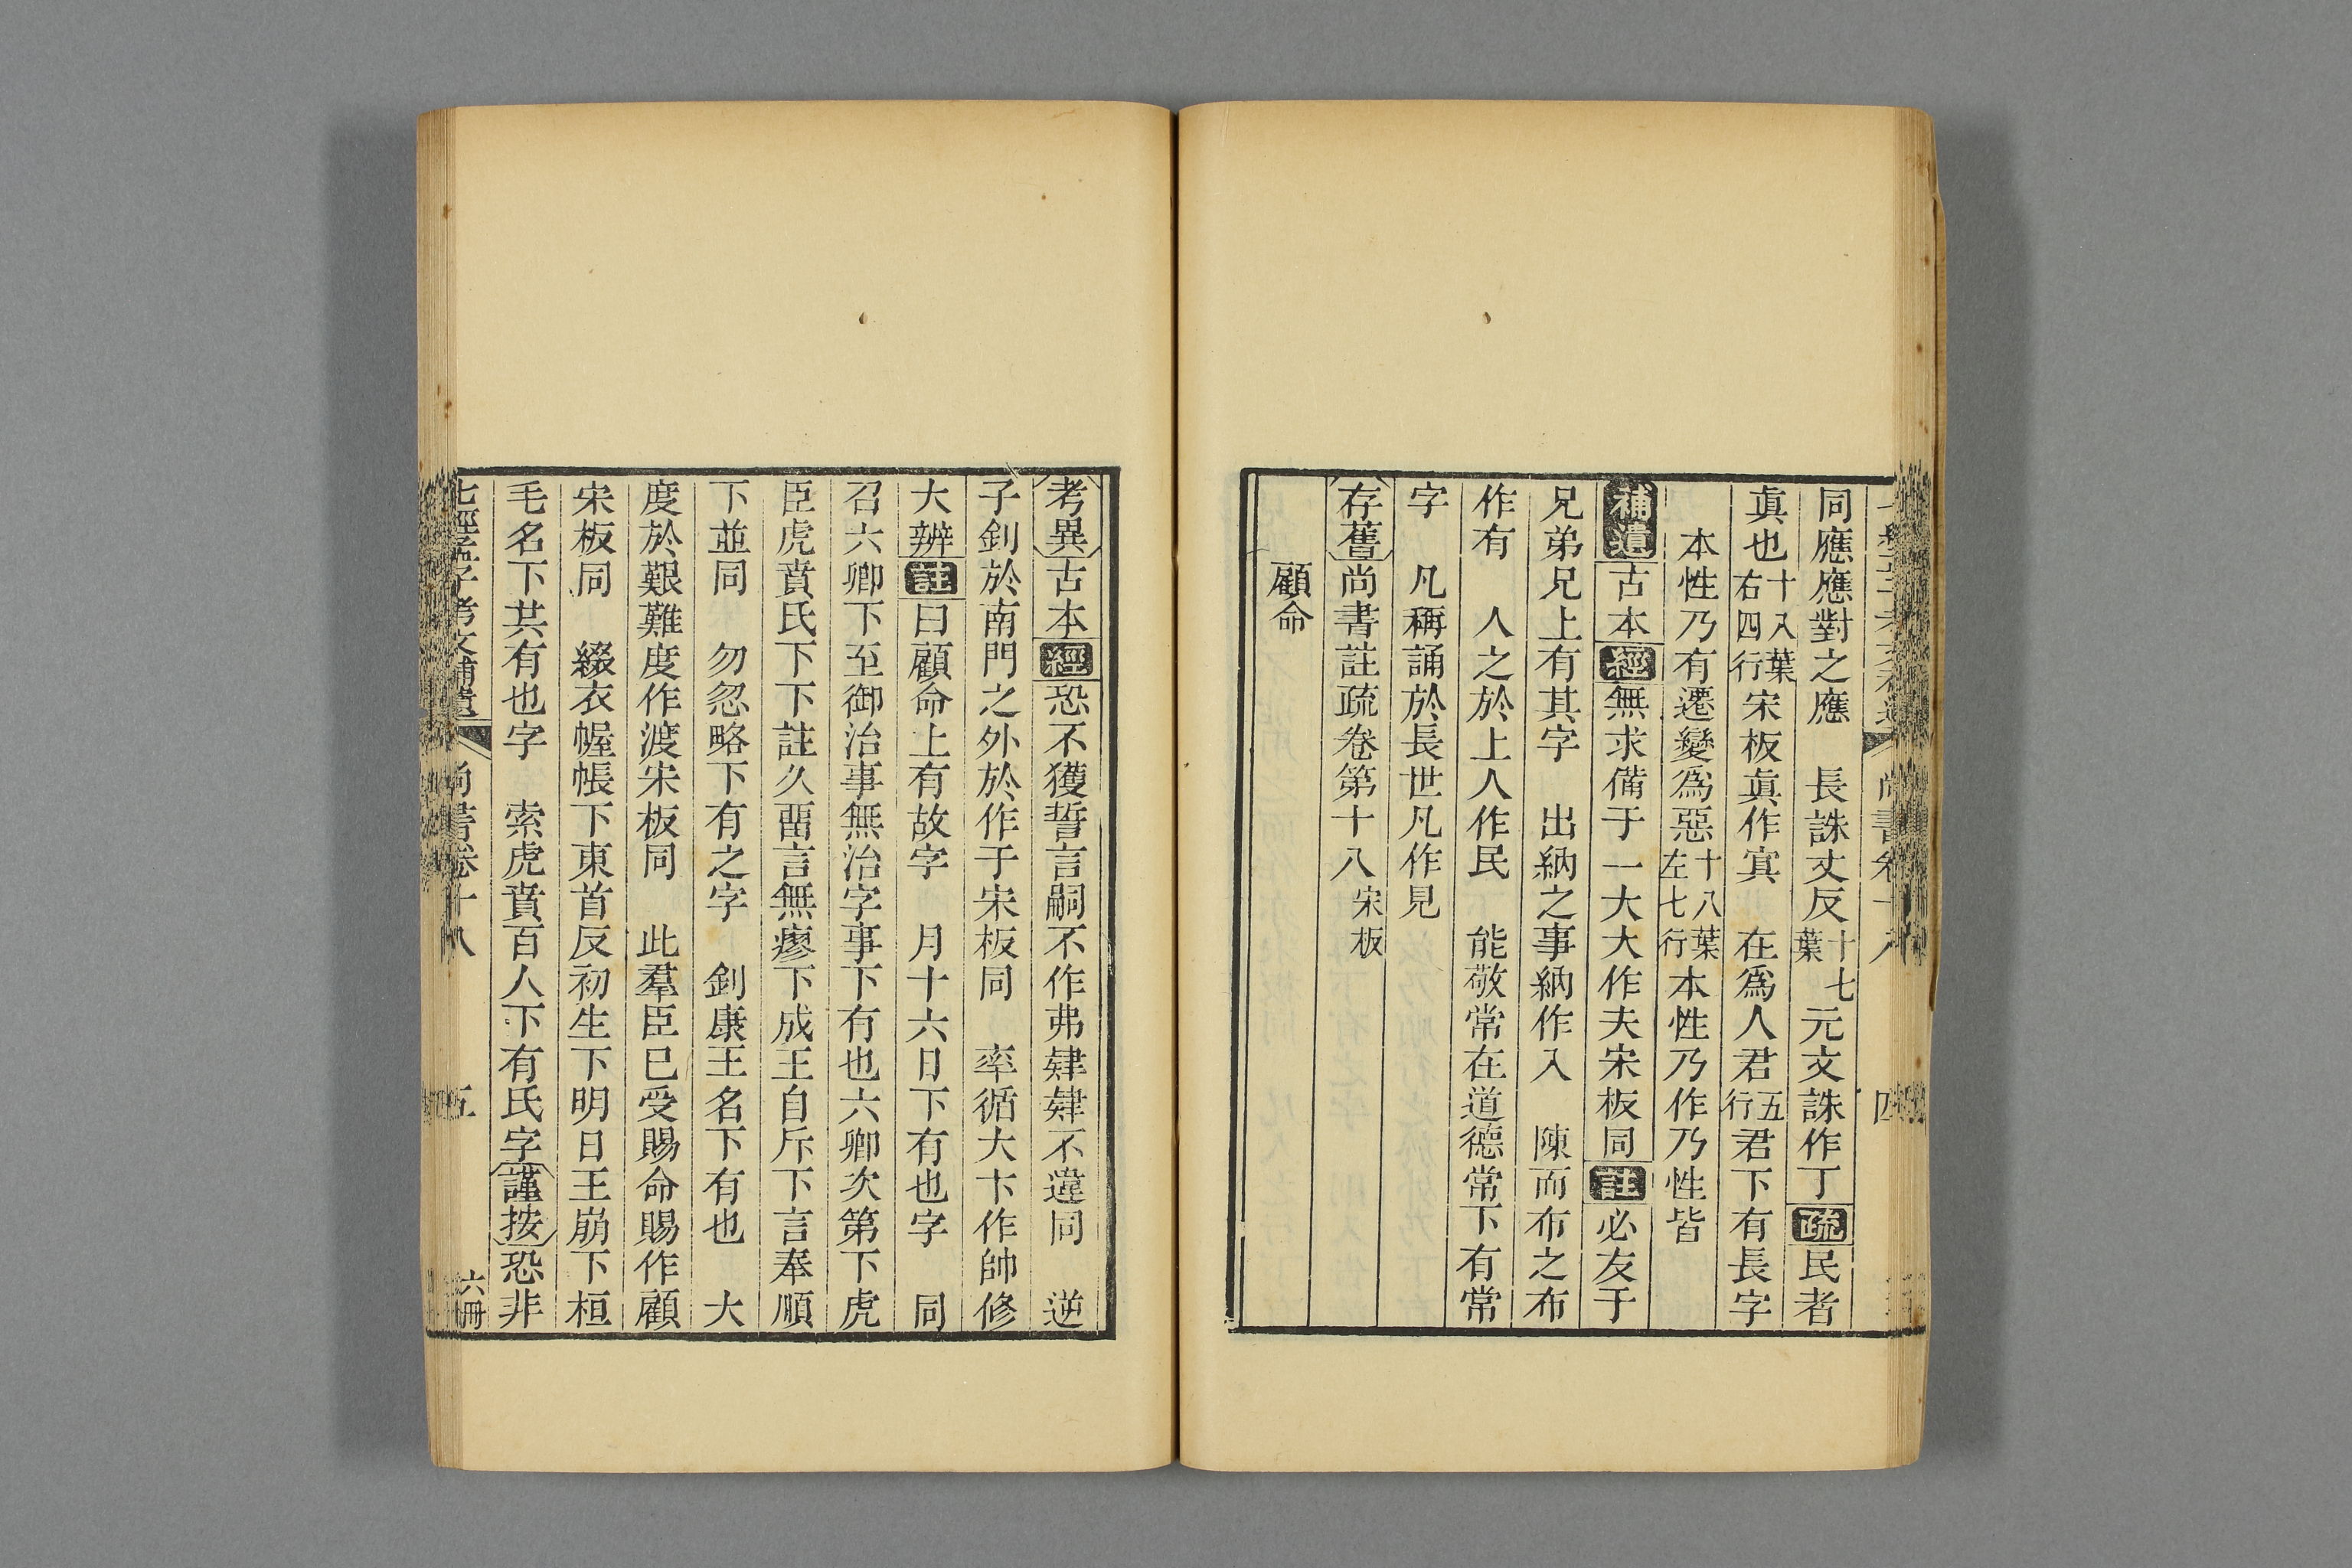 同應應對之應　長誅丈反十七葉元文誅作丁疏民者
眞也十八葉右四行宋板眞作寘　在爲人君五行君下有長字
本性乃有遷變爲惡十八葉左七行本性乃作乃性皆
補遺古本經無求備于一大大作夫宋板同註必友于
兄弟兄上有其字　出納之事納作入　陳而布之布
作有　人之於上人作民　能敬常在道德常下有常
字　凡稱誦於長世凡作見
存舊尚書註疏卷第十八宋板
顧命
考異古本經恐不獲誓言嗣不作弗肄肄不違同　逆
子釗於南門之外於作于宋板同　率循大卞作帥修
大辨註曰顧命上有故字　月十六日下有也字　同
召六卿下至御治事無治字事下有也六卿次第下虎
臣虎賁氏下下註久畱言無瘳下成王自斥下言奉順
下並同　勿忽略下有之字　釗康王名下有也　大
度於艱難度作渡宋板同　此羣臣已受賜命賜作顧
宋板同　綴衣幄帳下東首反初生下明日王崩下桓
毛名下共有也字　索虎賁百人下有氏字謹按恐非
七經孟子考文補遺　尚書卷十八　五　六冊